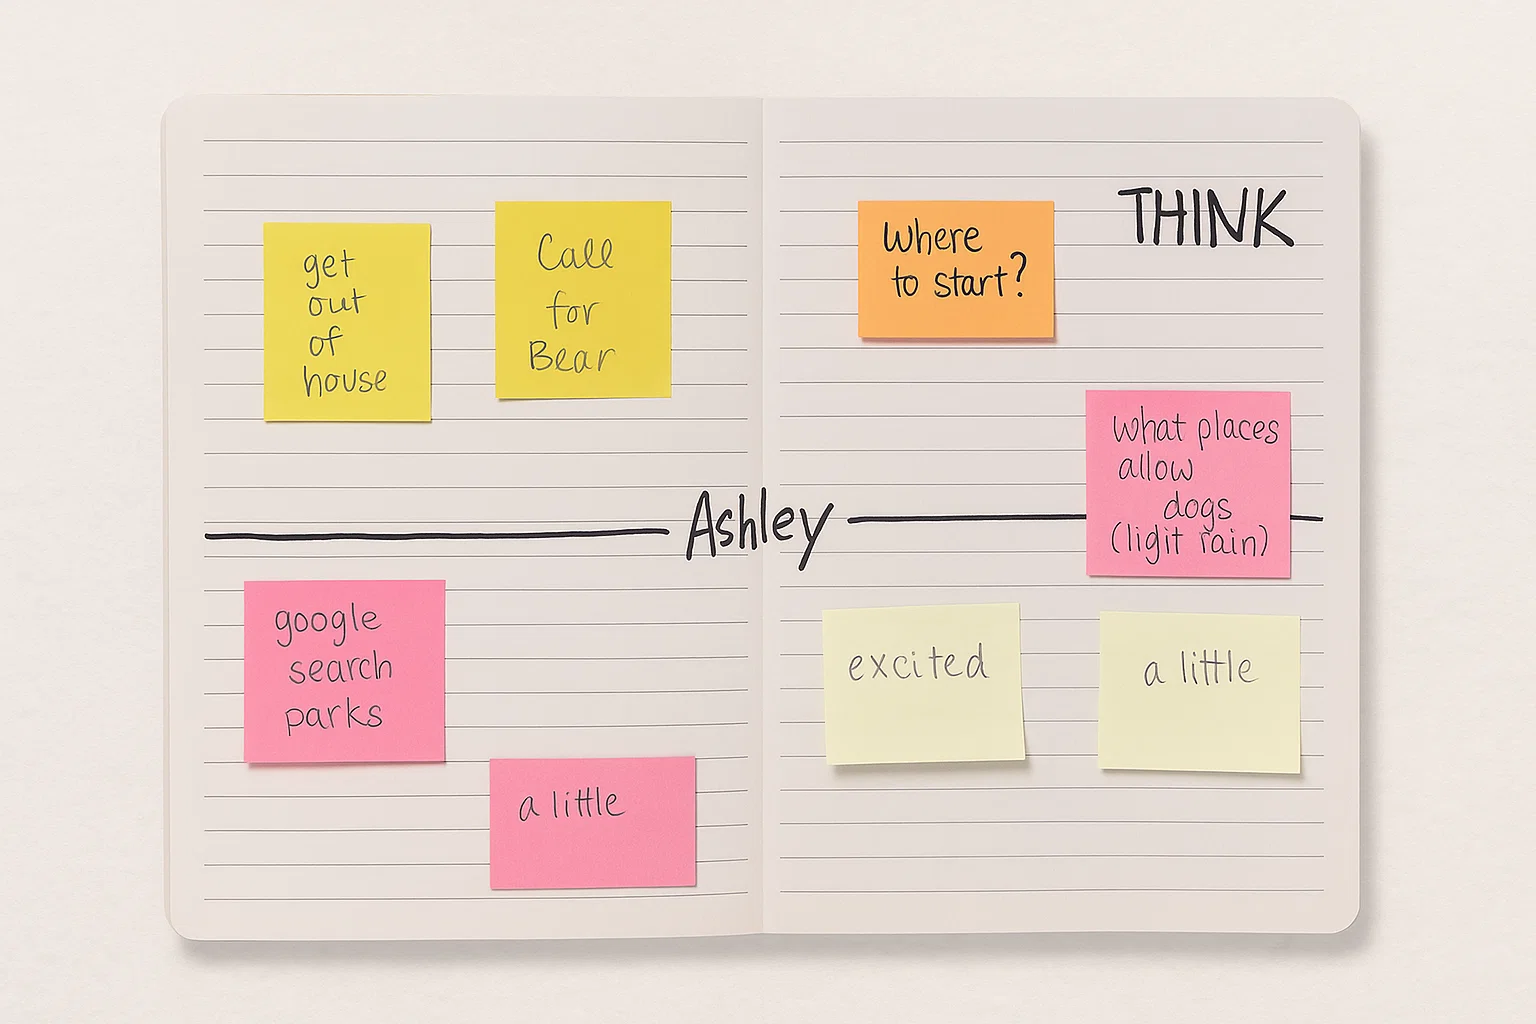 get
out
of
house
Call
for
Bear
Where
to start?
THINK
What places
allow
dogs
(ligit rain)
Ashley
google
search
parks
a little
excited
a little